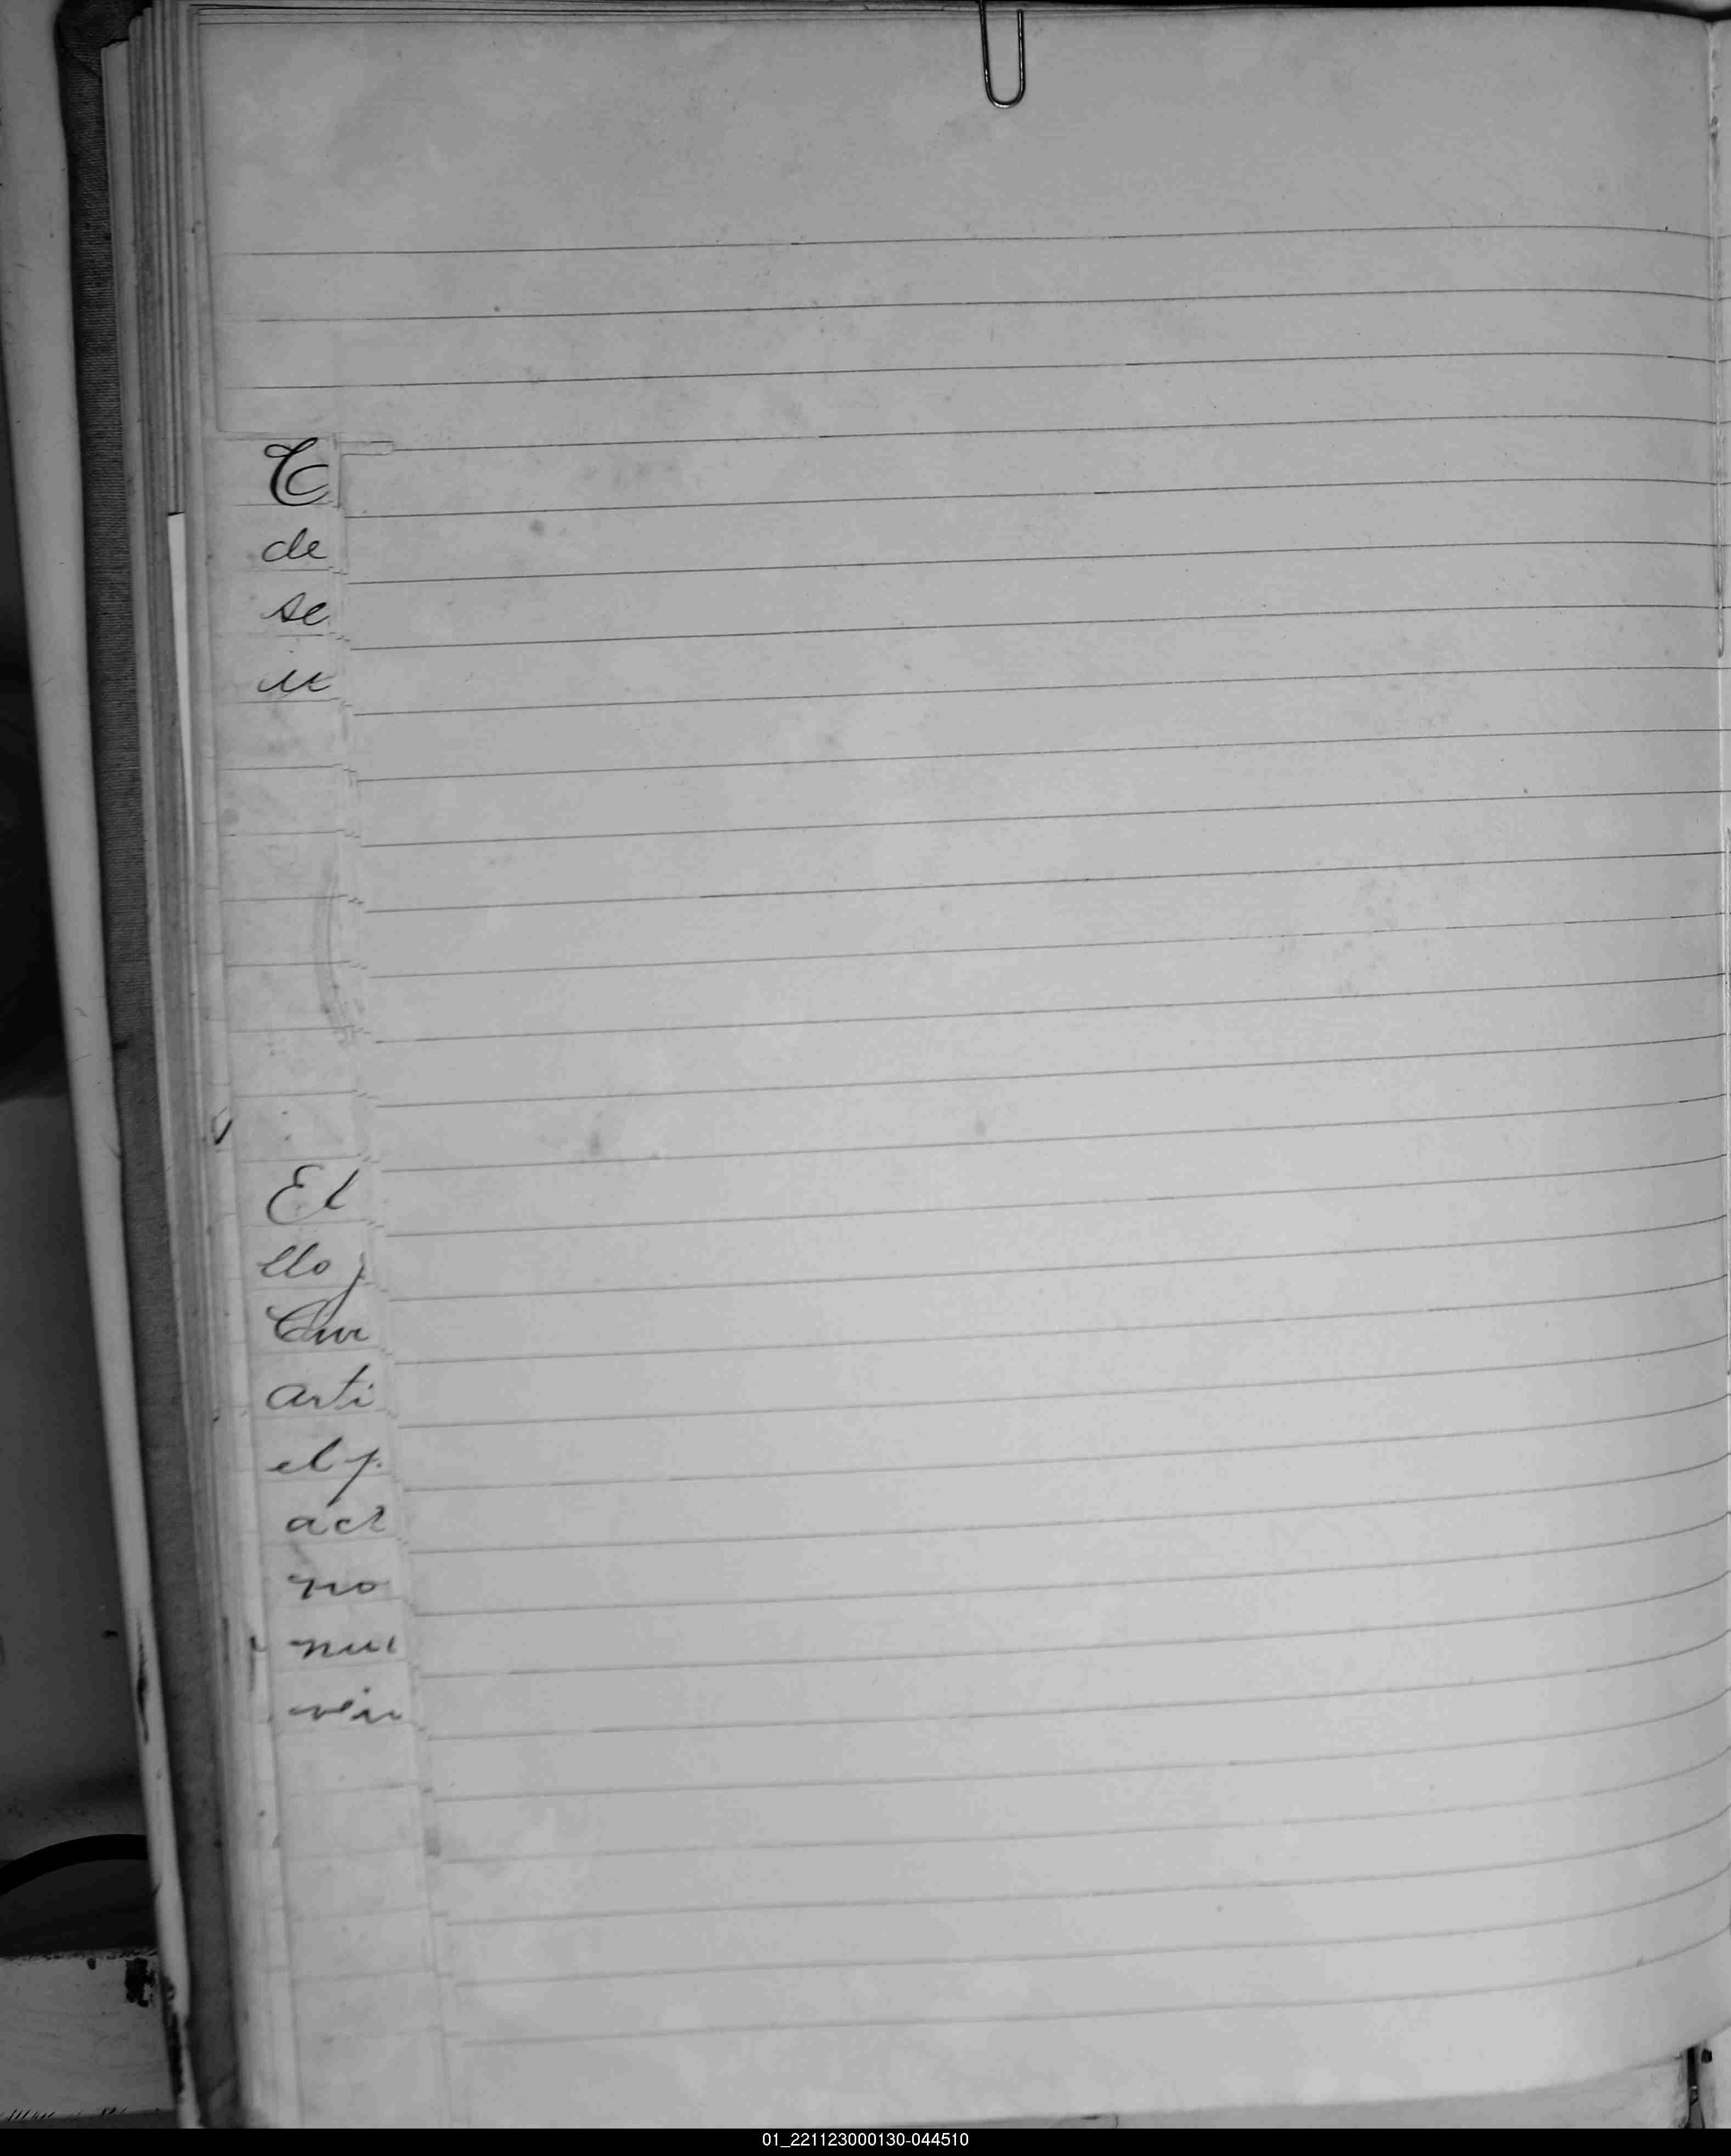 C
de
se
u
El
llo
Cur
arti
el p
act
no
nue
vein
01_221123000130-044510